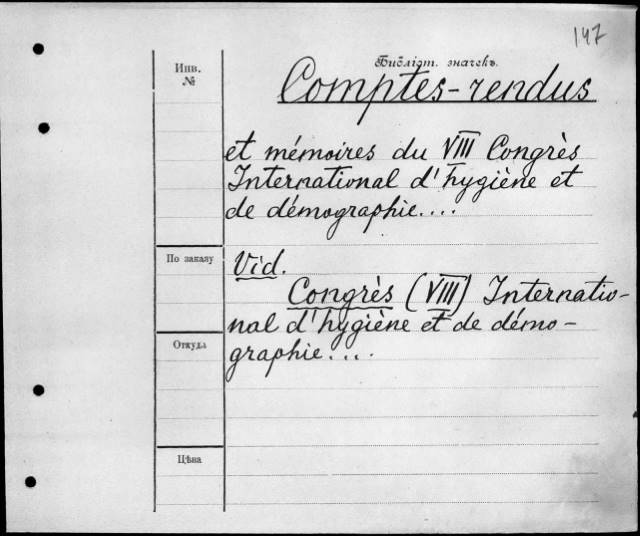 147
Инв.
№
Библіот. значекъ.
Comptes-rendus
et mémoires du VIII Congrès
International d'hygiène et
de démographie....
По заказу
Vid.
Congrès (VIII) Internatio-
nal d'hygiène et de démo-
Откуда
graphie....
Цѣна